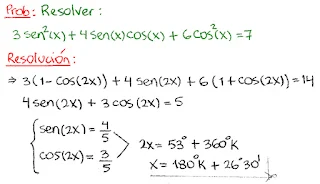 Prob: Resolver:
3 sen²(x) + 4 sen(x) cos(x) + 6 cos²(x) = 7
Resolución:
⇒ 3(1 - cos(2x)) + 4 sen(2x) + 6(1 + cos(2x)) = 14
4 sen(2x) + 3 cos(2x) = 5
sen(2x) = 4/5
cos(2x) = 3/5
2x = 53° + 360°k
x = 180°k + 26°30'